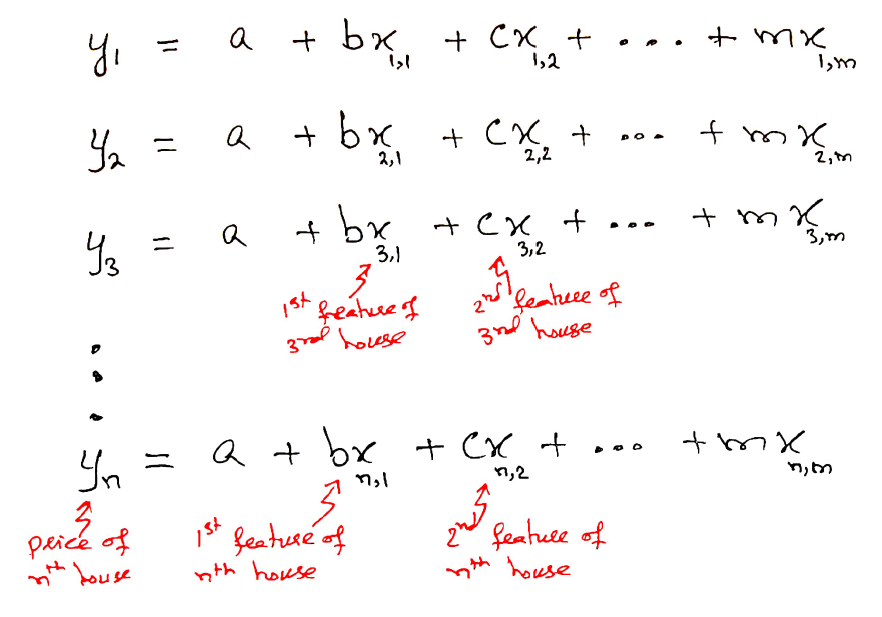 y₁ = a + bx₁,₁ + cx₁,₂ + ... + mx₁,m
y₂ = a + bx₂,₁ + cx₂,₂ + ... + mx₂,m
y₃ = a + bx₃,₁ + cx₃,₂ + ... + mx₃,m
1st feature of
3rd house
2nd feature of
3rd house
⋮
yₙ = a + bxₙ,₁ + cxₙ,₂ + ... + mxₙ,m
price of
nth house
1st feature of
nth house
2nd feature of
nth house